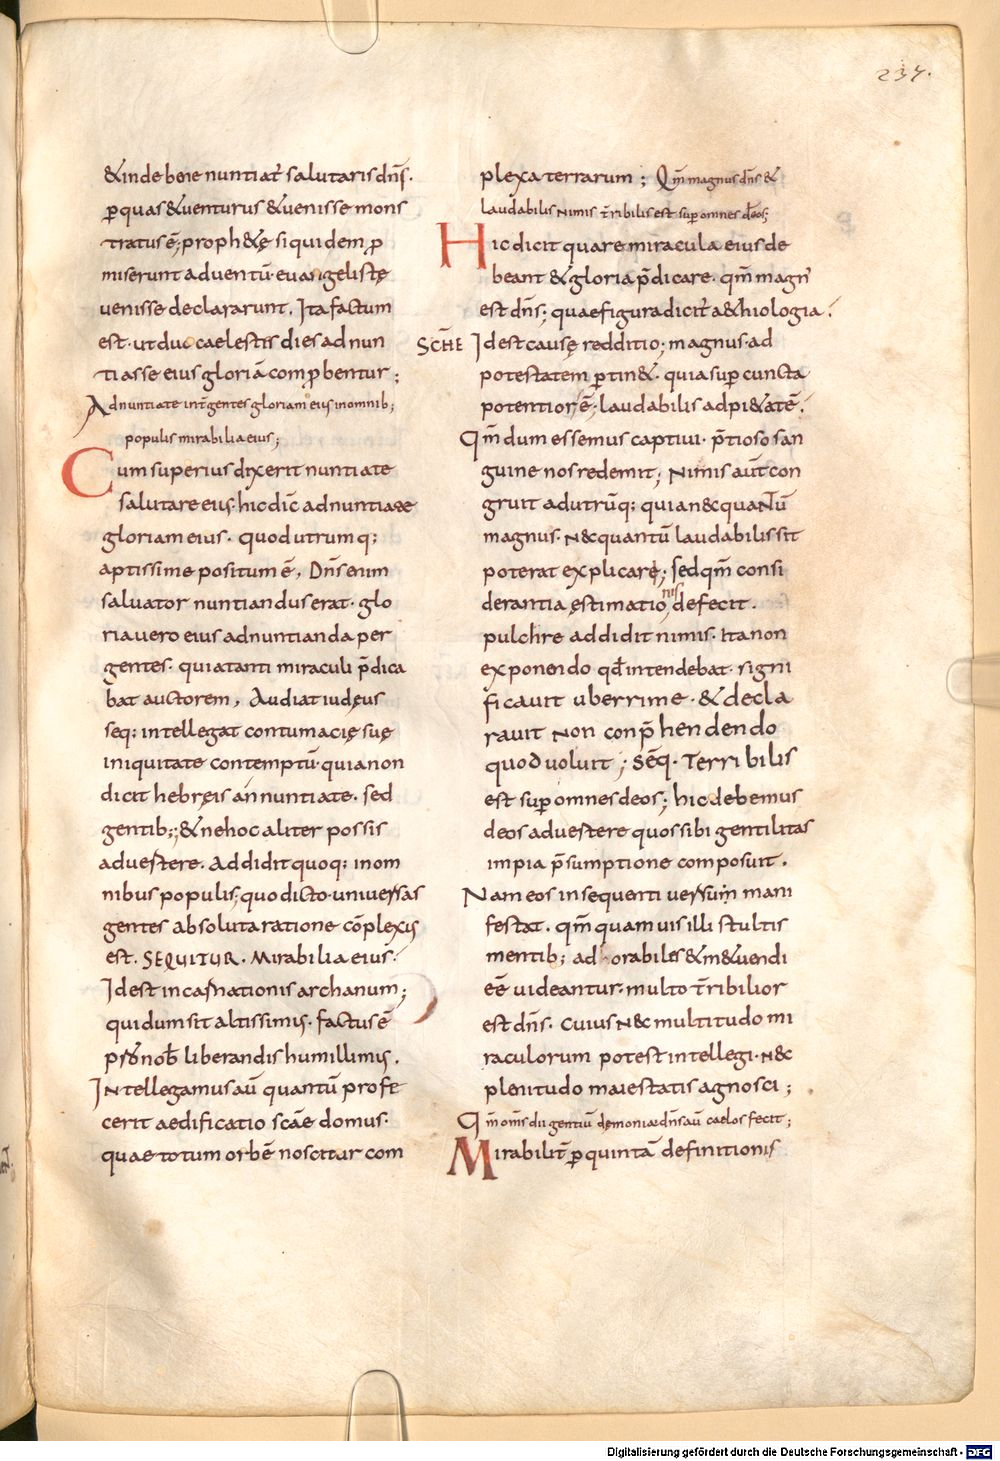 237.
&inde bene nuntiat̄ salutaris dn̄s.
ꝑ quas & uenturus & uenisse mons
tratus ē; proph&ę siquidem ꝓ
miserunt aduentū. euangelistę
uenisse declararunt. Ita factum
est. ut duo caelestis dies ad nun
tiasse eius gloriā comꝓbentur;
Adnuntiate int̄ gentes gloriam eius in omnib;
populis mirabilia eius;
Cum superius dixerit nuntiate
salutare eius. hic dic̄ adnuntiate
gloriam eius. quod utrumq;
aptissime positum ē, Dn̄s enim
saluator nuntiandus erat. glo
ria uero eius adnuntianda per
gentes. quia tanti miraculi p̄dica
bat auctorem, Audiat iudęus
seq; intellegat contumacię suę
iniquitate contemptū. quia non
dicit hebręis annuntiate. sed
gentib;; & ne hoc aliter possis
aduertere. Addidit quoq; in om
nibus populis; quo dicto. uniuersas
gentes absoluta ratione cōplexus
est. SEQUITUR. Mirabilia eius.
Id est incarnationis archanum;
qui dum sit altissimus. factus ē
pro nob̄ liberandis humillimus.
Intellegamus aū quantū profe
cerit aedificatio sc̄ae domus.
quae totum orbē noscitur com
plexa terrarum; Qm̄ magnus dn̄s &
laudabilis nimis t̄ribilis est suꝑ omnes deos;
Hic dicit quare miracula eius de
beant & gloria p̄dicare. qm̄ magn'
est dn̄s; quae figura dicit̄ a&hiologia.
SCHE Id est causę redditio; magnus. ad
potestatem ꝑtin&. quia suꝑ cuncta
potentior ē; laudabilis ad pi&atē.
Qm̄ dum essemus captiui. p̄tioso san
guine nos redemit; Nimis aūt con
gruit ad utrūq; quia n&c quantū
magnus. n&c quantū laudabilis sit
poterat explicare; sed qm̄ consi
derantia ęstimationis defecit.
pulchre addidit nimis. Ita non
exponendo qd̄ intendebat. signi
ficauit uberrime. & decla
rauit non conp̄hendendo
quod uoluit; Sēq. Terribilis
est suꝑ omnes deos; hic debemus
deos aduertere quos sibi gentilitas
impia p̄sumptione composuit.
Nam eos in sequenti uersum mani
festat. qm̄ quamuis illi stultis
mentib; adorabiles & m&uendi
eē uideantur. multo t̄ribilior
est dn̄s. cuius n&c multitudo mi
raculorum potest intellegi. n&c
plenitudo maiestatis agnosci;
Qm̄ om̄s dii gentiū dęmonia dn̄s aū caelos fecit;
Mirabilit̄ ꝑ quintā definitionis
Digitalisierung gefördert durch die Deutsche Forschungsgemeinschaft - DFG